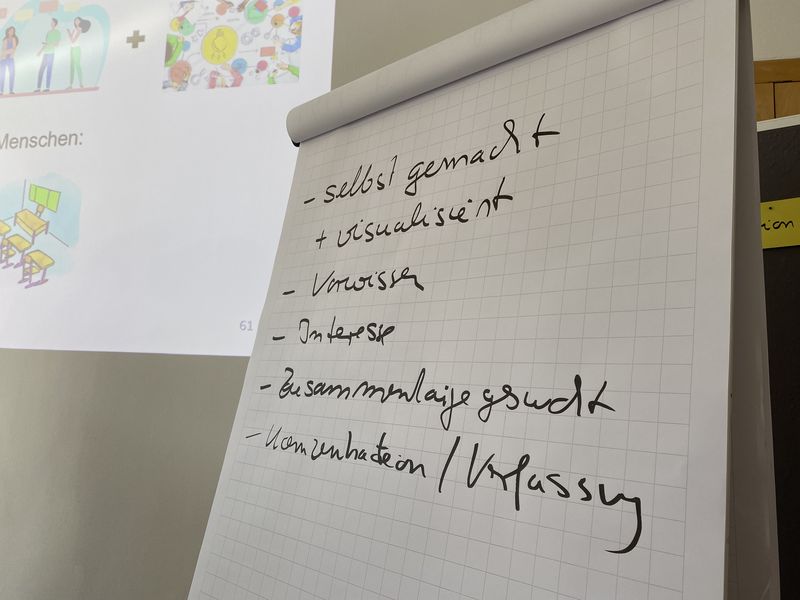 Menschen:
61
- selbst gemacht
+ visualisiert
- Vorwissen
- Interesse
- Zusammenhänge gesucht
- Konzentration / Verfassung